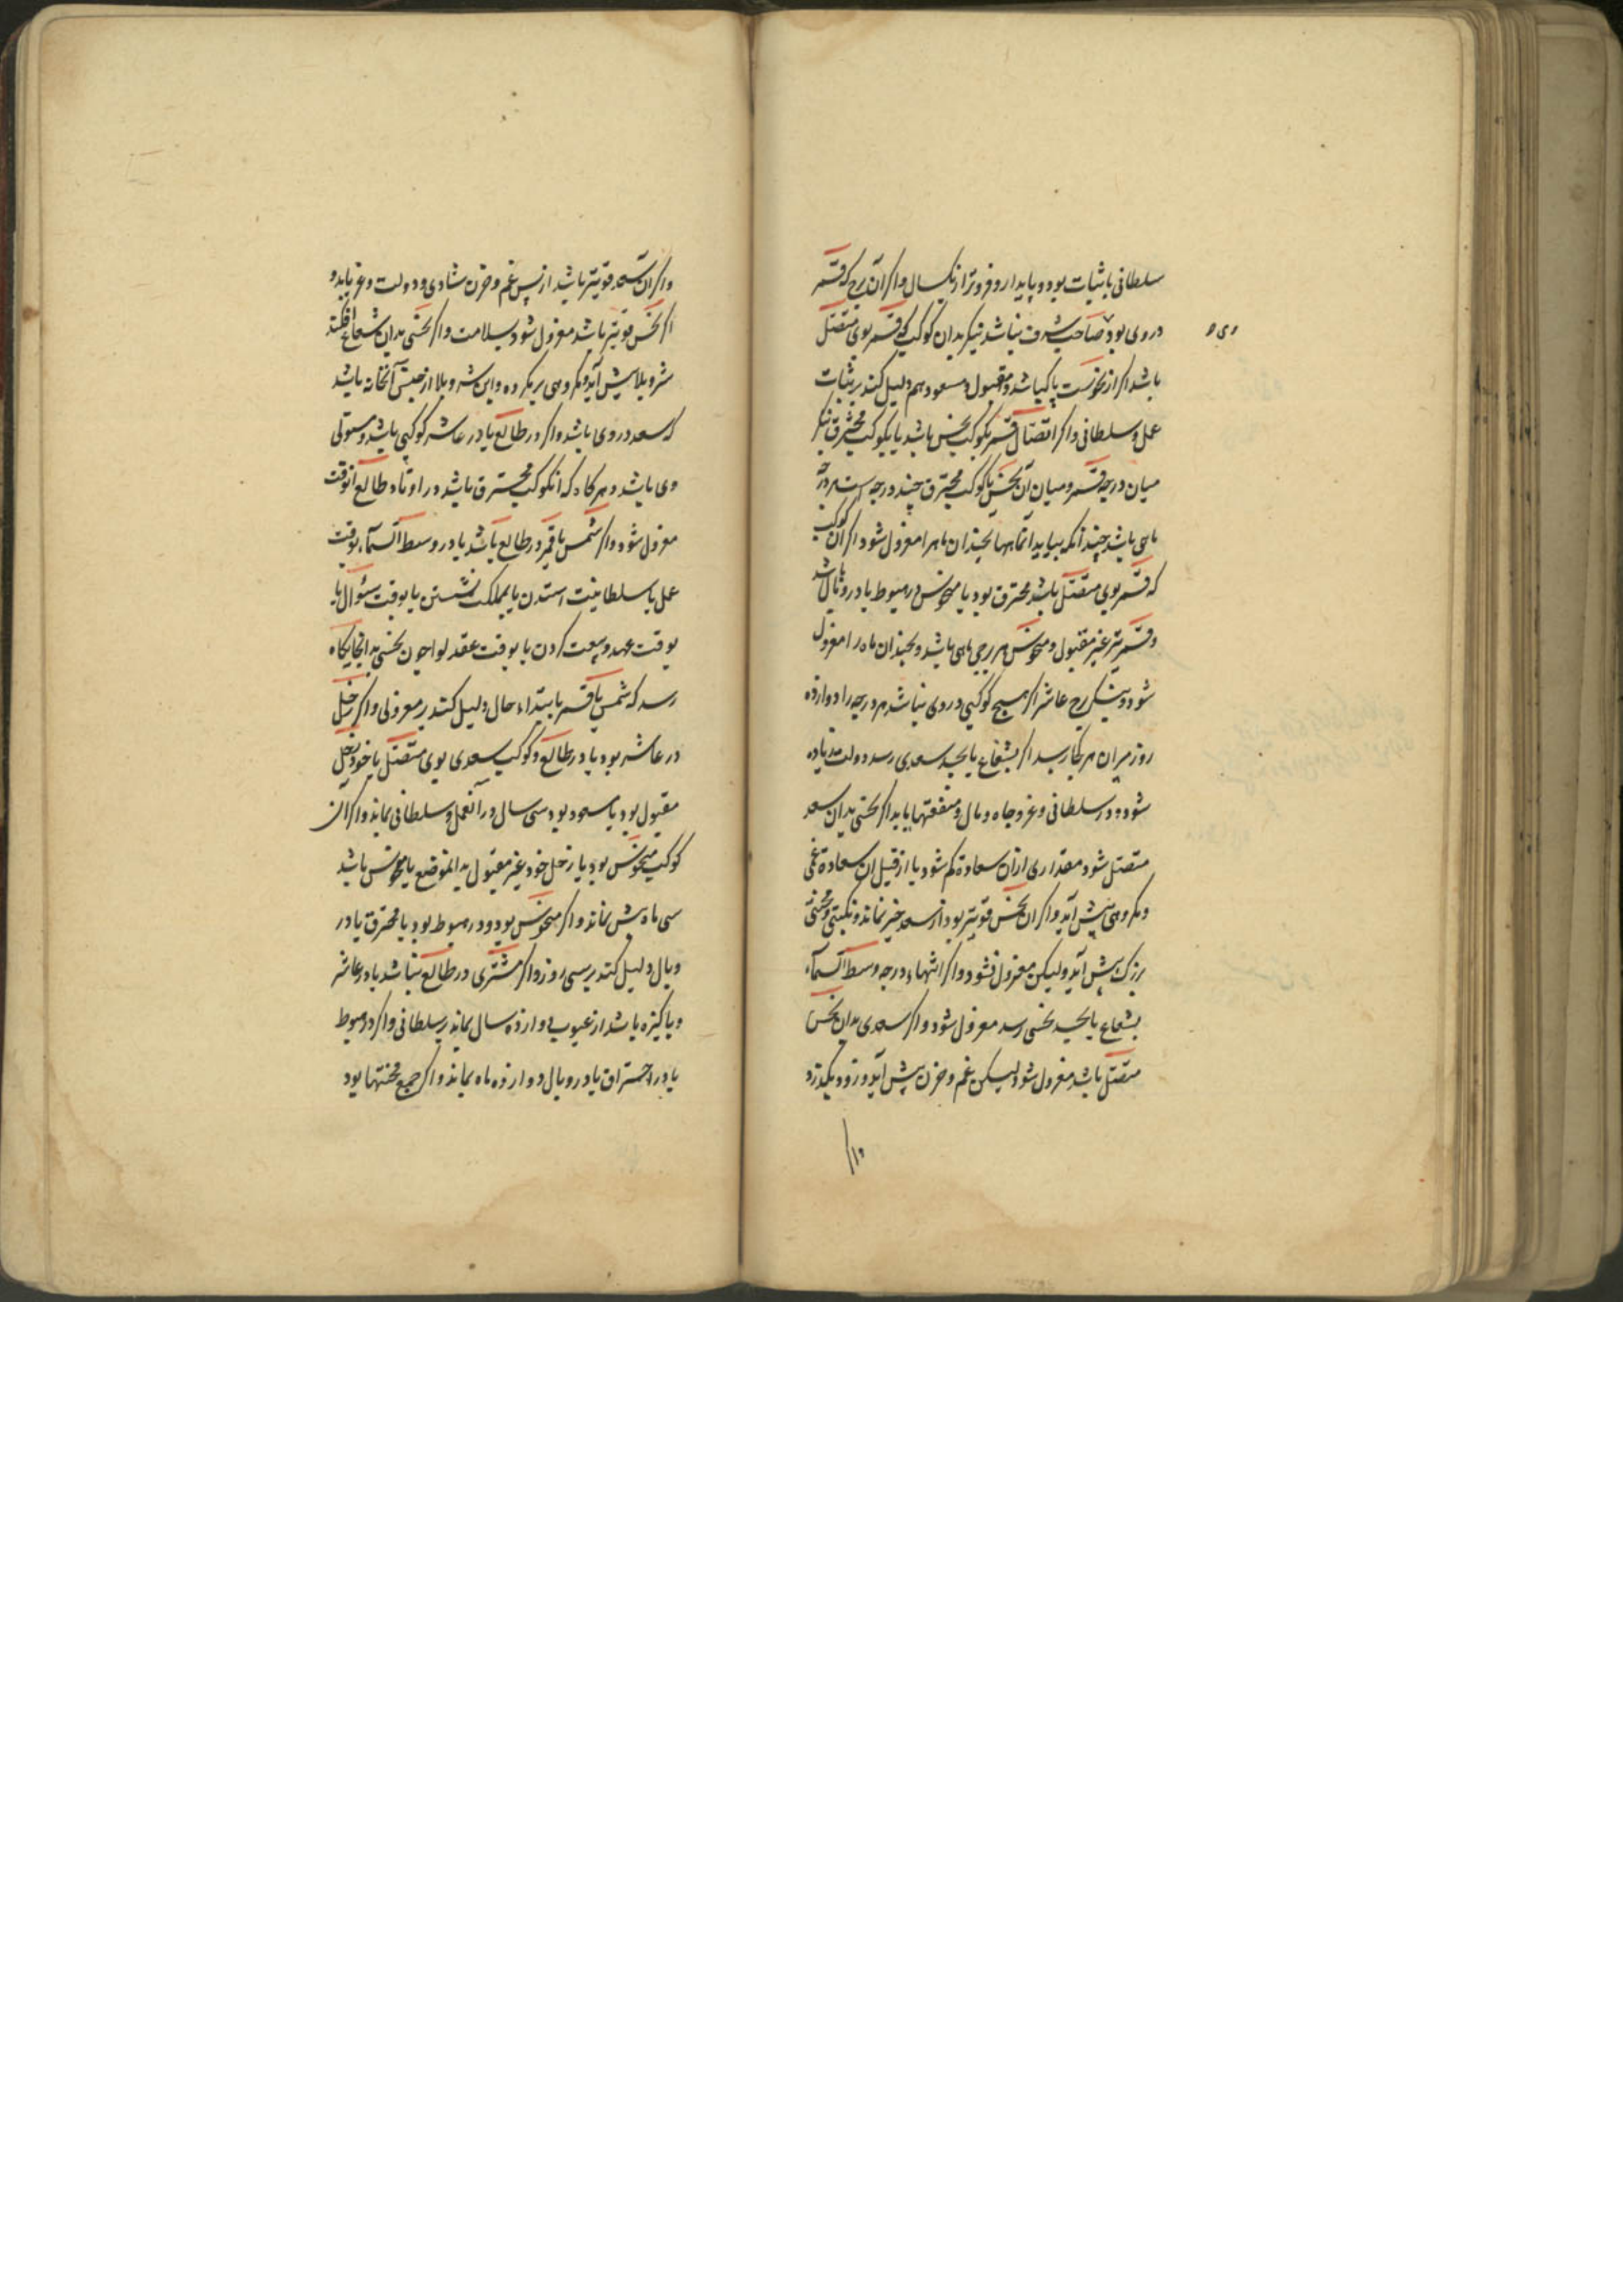 سلطانی با ثبات بود و پایدار و فزونتر از یکسال و اگر آن برج که قمر
در وی بود صاحب شرف نباشد بنگر بدان کوکب که قمر بوی متصل
باشد اگر از نحوست پاک باشد و مقبول و مسعود هم دلیل کند بر ثبات
عمل و سلطانی و اگر اتصال قمر بکوکب نحس باشد یا بکوکب محترق بنگر
میان درجه قمر و میان آن نحس یا کوکب محترق چند درجه است هر درجه
ماهی باشد چندانکه بیاید آن ماهها بچندان ماهرا معزول شود و اگر آن کوکب
که قمر بوی متصل باشد محترق بود یا منحوس در هبوط یا در وبال باشد
و قمر نیز غیر مقبول و منحوس هر برجی ماهی باشد و بچندان ماه را معزول
شود و بنگر برج عاشر اگر هیچ کوکبی در وی نباشد هر درجه را دوازده
روز میران هر کجا رسید اگر بشعاع یا بجسد سعدی رسد دولت مند زیاده
شود و در سلطانی و عز و جاه و مال و منفعتها یابد اگر نحسی بدان سعد
متصل شود مقداری از آن سعادة کم شود یا از قبل آن سعادة غمی
و مکروهی پیش آید و اگر آن نحس قویتر بود از سعد خیر نماند و نکبتی و محنتی
بزرک پیش آید ولیکن معزول نشود و اگر انتهاء درجه وسط السماء
بشعاع یا بجسد نحسی رسد معزول شود و اگر سعدی بدان نحس
متصل باشد معزول شود لیکن غم و حزن پیش آید و زود بگذرد
و اگر آن سعد قویتر باشد از پس غم و حزن شادی و دولت و عز یابد و
اگر نحس قویتر باشد معزول شود بسلامت و اگر نحسی بدان شعاع افکند
شر و بلا پیش آید و مکروهی بر مکروه و این شر و بلا از جنس آنخانه باشد
که سعد در وی باشد و اگر در طالع یا در عاشر کوکبی باشد و مستولی
وی باشد و هر کاه که آنکوکب محترق باشد در اوتاد طالع آنوقت
معزول شود و اگر شمس یا قمر در طالع باشد یا در وسط السماء بوقت
عمل یا سلطانیت استدن یا بمملکت نشستن یا بوقت سؤال یا
بوقت عهد و بیعت کردن یا بوقت عقد لوا چون نحسی بدانجایگاه
رسد که شمس یا قمر بابتداء حال دلیل کند بر معزولی و اگر زحل
در عاشر بود یا در طالع و کوکب سعدی بوی متصل یا خود زحل
مقبول بود یا مسعود بود سی سال در آنعمل و سلطانی بماند و اگر آن
کوکب منحوس بود یا زحل خود غیر مقبول بدانموضع یا منحوس باشد
سی ماه بیش نماند و اگر منحوس بود و در هبوط بود یا محترق یا در
وبال دلیل کند بر سی روز و اگر مشتری در طالع بباشد یا در عاشر
و پاکیزه باشد از عیوب دوازده سال بماند بر سلطانی و اگر در هبوط
یا در احتراق یا در وبال دوازده ماه بماند و اگر جمع محنتها بود